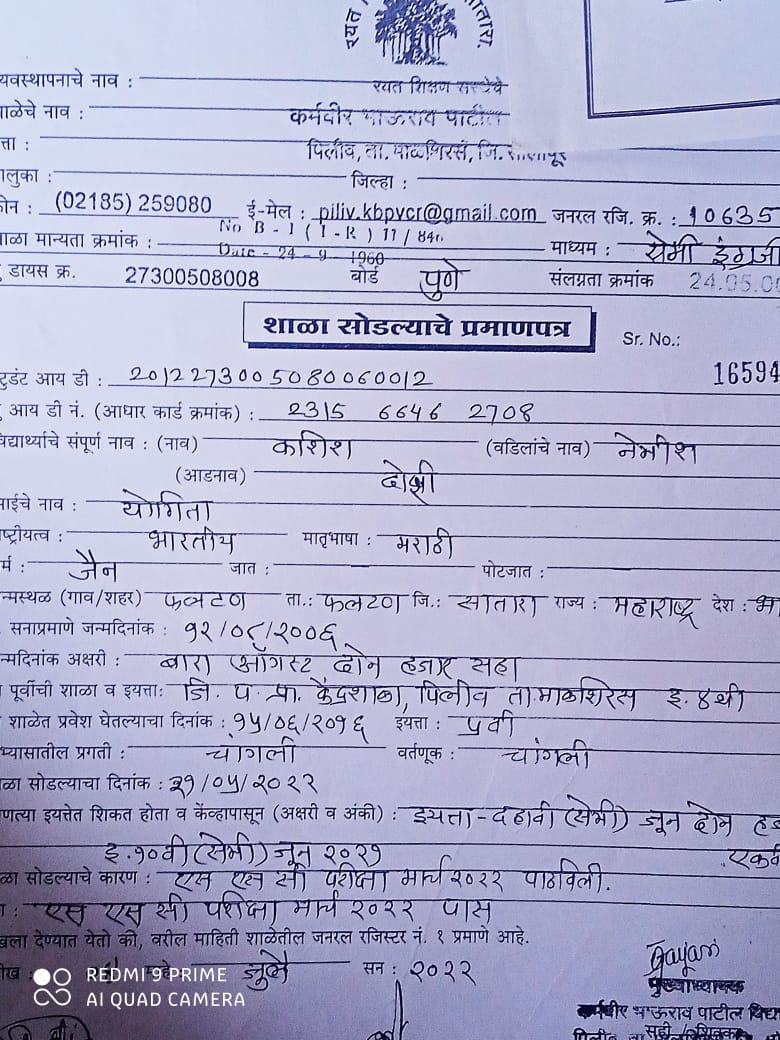 रयत सातारा.
यवस्थापनाचे नाव : रयत शिक्षण संस्थेचे
ाळेचे नाव : कर्मवीर भाऊराव पाटील
त्ता : पिलीव, ता. माळशिरस, जि. सोलापूर
ालुका : जिल्हा :
ोन : (02185) 259080 ई-मेल : piliv.kbpvcr@gmail.com जनरल रजि. क्र. : 10635
ाळा मान्यता क्रमांक : No B - 1 ( 1 - R ) 11 / 840 माध्यम : सेमी इंग्रजी
Date - 24 - 9 - 1960
डायस क्र. 27300508008 बोर्ड पुणे संलग्नता क्रमांक 24.05.00
शाळा सोडल्याचे प्रमाणपत्र Sr. No.:
टुडंट आय डी : 2012273005080060012 16594
आय डी नं. (आधार कार्ड क्रमांक) : 2315 6646 2708
विद्यार्थ्याचे संपूर्ण नाव : (नाव) कशिश (वडिलांचे नाव) नेमीश
(आडनाव) दोशी
आईचे नाव : योगिता
ाष्ट्रीयत्व : भारतीय मातृभाषा : मराठी
र्म : जैन जात : पोटजात :
न्मस्थळ (गाव/शहर) फलटण ता.: फलटण जि.: सातारा राज्य : महाराष्ट्र देश : भा
. सनाप्रमाणे जन्मदिनांक : १२/०८/२००६
न्मदिनांक अक्षरी : बारा ऑगस्ट दोन हजार सहा
पूर्वीची शाळा व इयत्ता: जि. प. प्रा. केंद्रशाळा, पिलीव ता.माळशिरस इ. ४थी
शाळेत प्रवेश घेतल्याचा दिनांक : १५/०६/२०१६ इयत्ता : ५वी
भ्यासातील प्रगती : चांगली वर्तणूक : चांगली
ळा सोडल्याचा दिनांक : ३१/०५/२०२२
णत्या इयत्तेत शिकत होता व केंव्हापासून (अक्षरी व अंकी) : इयत्ता - दहावी (सेमी) जून दोन हज
इ.१०वी (सेमी) जून २०२१ एकवी
ळा सोडल्याचे कारण : एस एस सी परीक्षा मार्च २०२२ पाठविली.
ा : एस एस सी परीक्षा मार्च २०२२ पास
खला देण्यात येतो की, वरील माहिती शाळेतील जनरल रजिस्टर नं. १ प्रमाणे आहे.
ीख : जुलै सन : २०२२
मुख्याध्यापक
कर्मवीर भाऊराव पाटील विद्या
सही / शिक्का
REDMI 9 PRIME
AI QUAD CAMERA